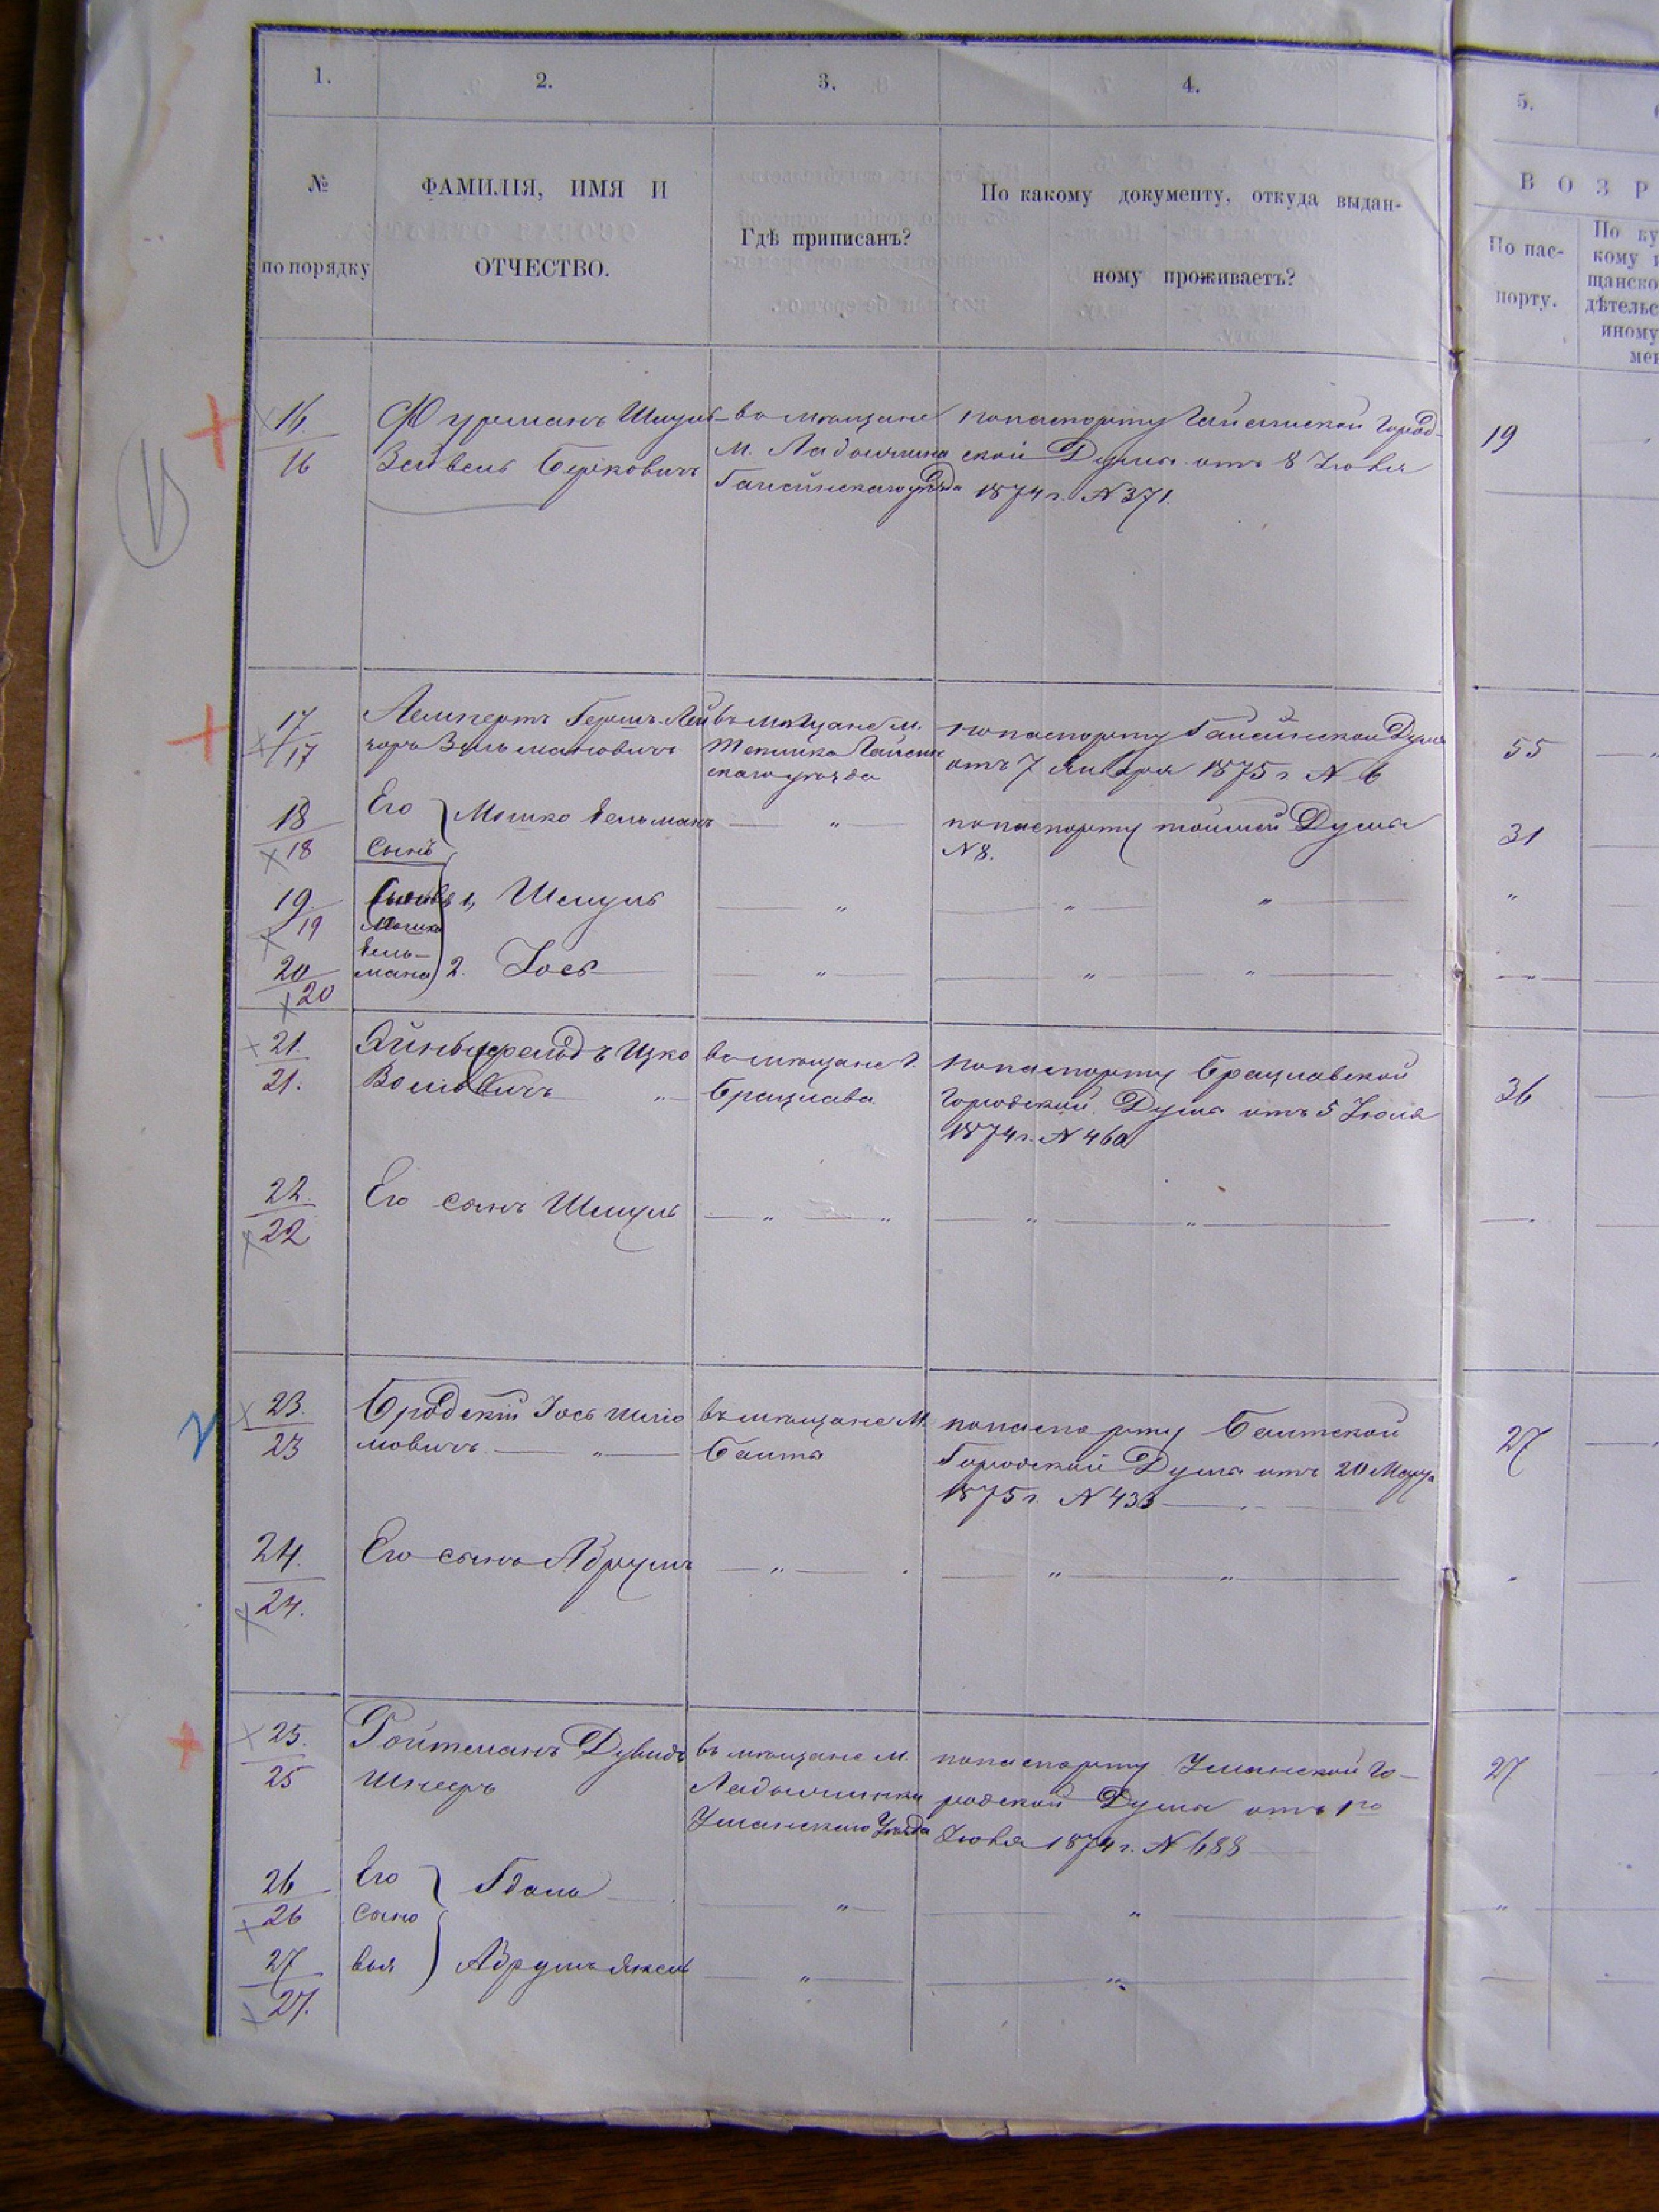 1. 2. 3. 4. 5.
№ по порядку
ФАМИЛІЯ, ИМЯ И
ОТЧЕСТВО.
Гдѣ приписанъ?
По какому документу, откуда выдан-
ному проживаетъ?
ВОЗР
По пас-
порту.
По ку
кому и
щанско
дѣтельс
иному
мен
16. Фурманъ Шмуль- въ мѣщане по паспорту Гайсинской Город- 19
16 Зейвель Берковичъ М. Ладыжина ской Думы отъ 8 Іюня
Гайсинскаго уѣзда 1874 г. № 371.
17 Лемпертъ Гершъ-Лей въ мѣщане м. по паспорту Гайсинской Думы 55
17 Зельмановичъ Теплика Гайсин
скаго уѣзда отъ 7 Января 1875 г № 6
18 Его Мошко Зельманъ — „ — по паспорту тойжей Думы 31
18 сынъ № 8.
19 Сыновья 1, Шмуль — „ — „ „ „
19 Мошка
Зель-
20 мана 2. Іось — „ — „ — „ —
20
21. Айнбиндеръ Ицко въ мѣщане г. по паспорту Брацлавской 36
21. Волковичъ „ Брацлава Городской Думы отъ 5 Іюля
1874 г. № 460
22. Его сынъ Шмуль — „ — „ — „ — „ —
22
23. Бродскій Іось Шліо въ мѣщане М. по паспорту Балтской 27
23 мовичъ — „ — Балты Городской Думы отъ 20 Марта
1875 г. № 433
24. Его сынъ Абрумъ — „ — „ — „ —
24.
25. Ройтманъ Дувидъ въ мѣщане м. по паспорту Уманской Го- 27
25 Шнеръ Ладыжинки родской Думы отъ 1го
Уманскаго Уѣзда Іюня 1874 г. № 688
26 Его Гдаль — „ — „ — „
26 сыно
27 вья Абрумъ Янкель — „ — „ —
27.